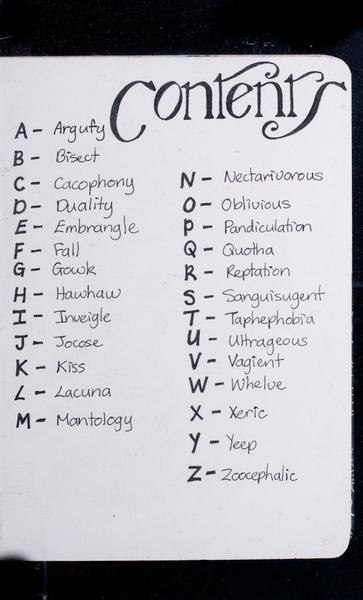 Contents
A - Argufy
B - Bisect
C - Cacophony
D - Duality
E - Embrangle
F - Fall
G - Gowk
H - Hawhaw
I - Inveigle
J - Jocose
K - Kiss
L - Lacuna
M - Mantology
N - Nectarivorous
O - Oblivious
P - Pandiculation
Q - Quotha
R - Reptation
S - Sanguisugent
T - Taphephobia
U - Ultrageous
V - Vagient
W - Whelve
X - Xeric
Y - Yeep
Z - Zoocephalic